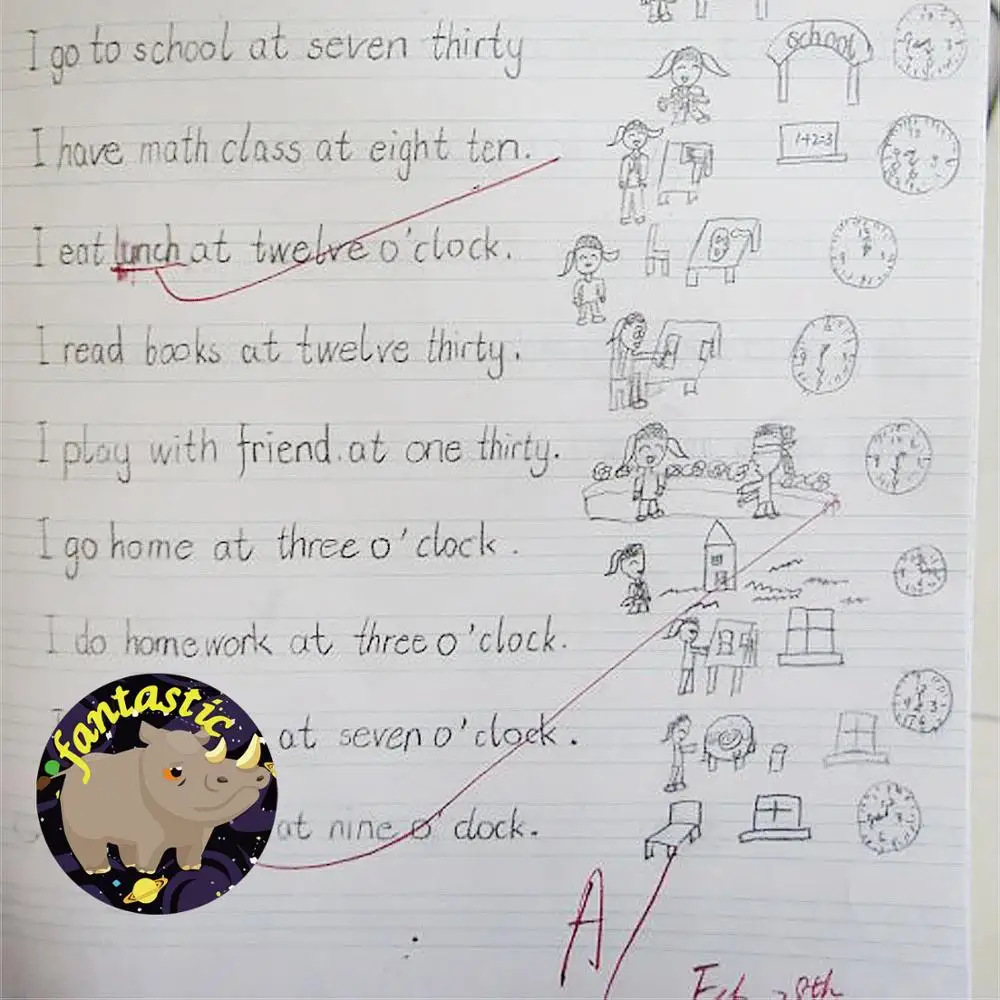 I go to school at seven thirty
school
I have math class at eight ten.
1+2=3
I eat lunch at twelve o'clock.
I read books at twelve thirty.
I play with friend. at one thirty.
I go home at three o'clock.
I do homework at three o'clock.
fantastic
I at seven o'clock.
at nine o'clock.
A